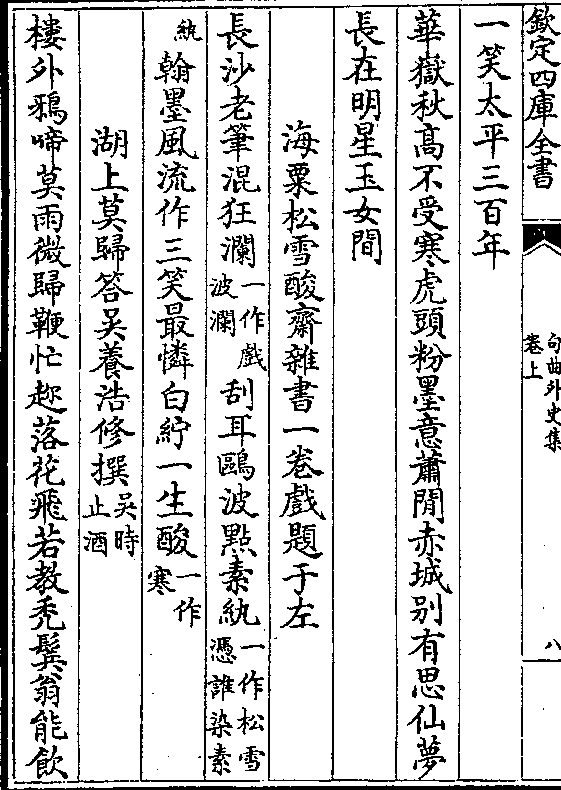 欽定四庫全書
句曲外史集
卷上
八
一笑太平三百年
華嶽秋髙不受寒虎頭粉墨意蕭閒赤城别有思仙夢
長在明星玉女間
海粟松雪酸齋雜書一卷戲題于左
長沙老筆混狂瀾一作戲波瀾刮耳鷗波點素紈一作松雪憑誰染素
紈翰墨風流作三笑最憐白紵一生酸一作寒
湖上莫歸答吴養浩修撰吴時止酒
樓外鴉啼莫雨微歸鞭忙趂落花飛若教禿鬢翁能飲